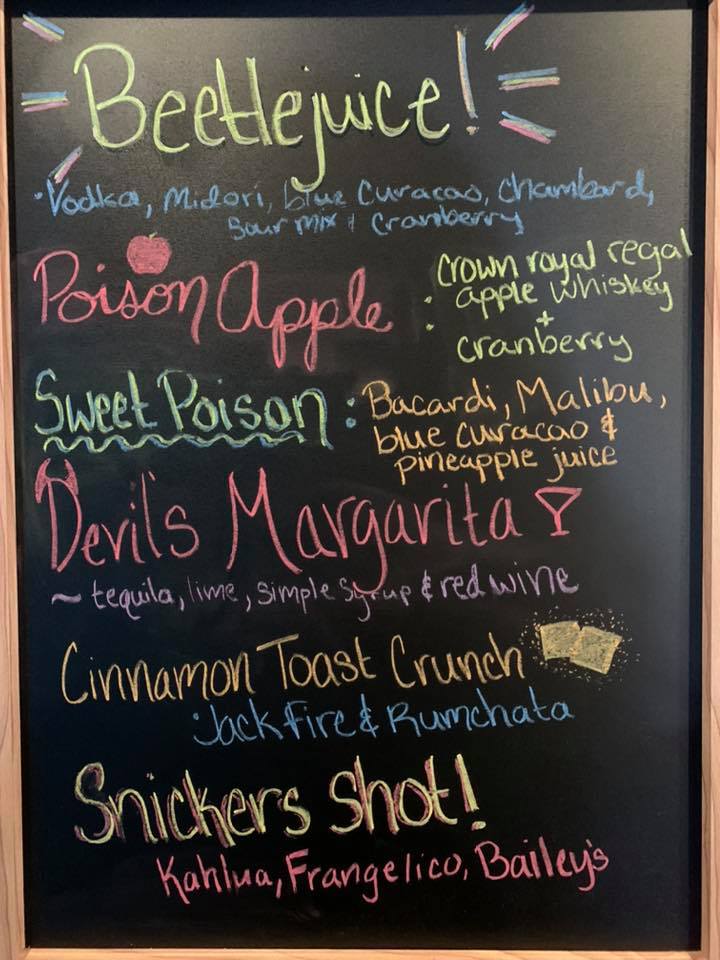 Beetlejuice!
·Vodka, Midori, blue Curacao, Chambard,
Sour mix & Cranberry
Poison Apple : Crown royal regal
apple whiskey
+
cranberry
Sweet Poison : Bacardi, Malibu,
blue curacao &
pineapple juice
Devil's Margarita
~ tequila, lime, simple syrup & red wine
Cinnamon Toast Crunch
:Jack Fire & Rumchata
Snickers Shot!
Kahlua, Frangelico, Bailey's